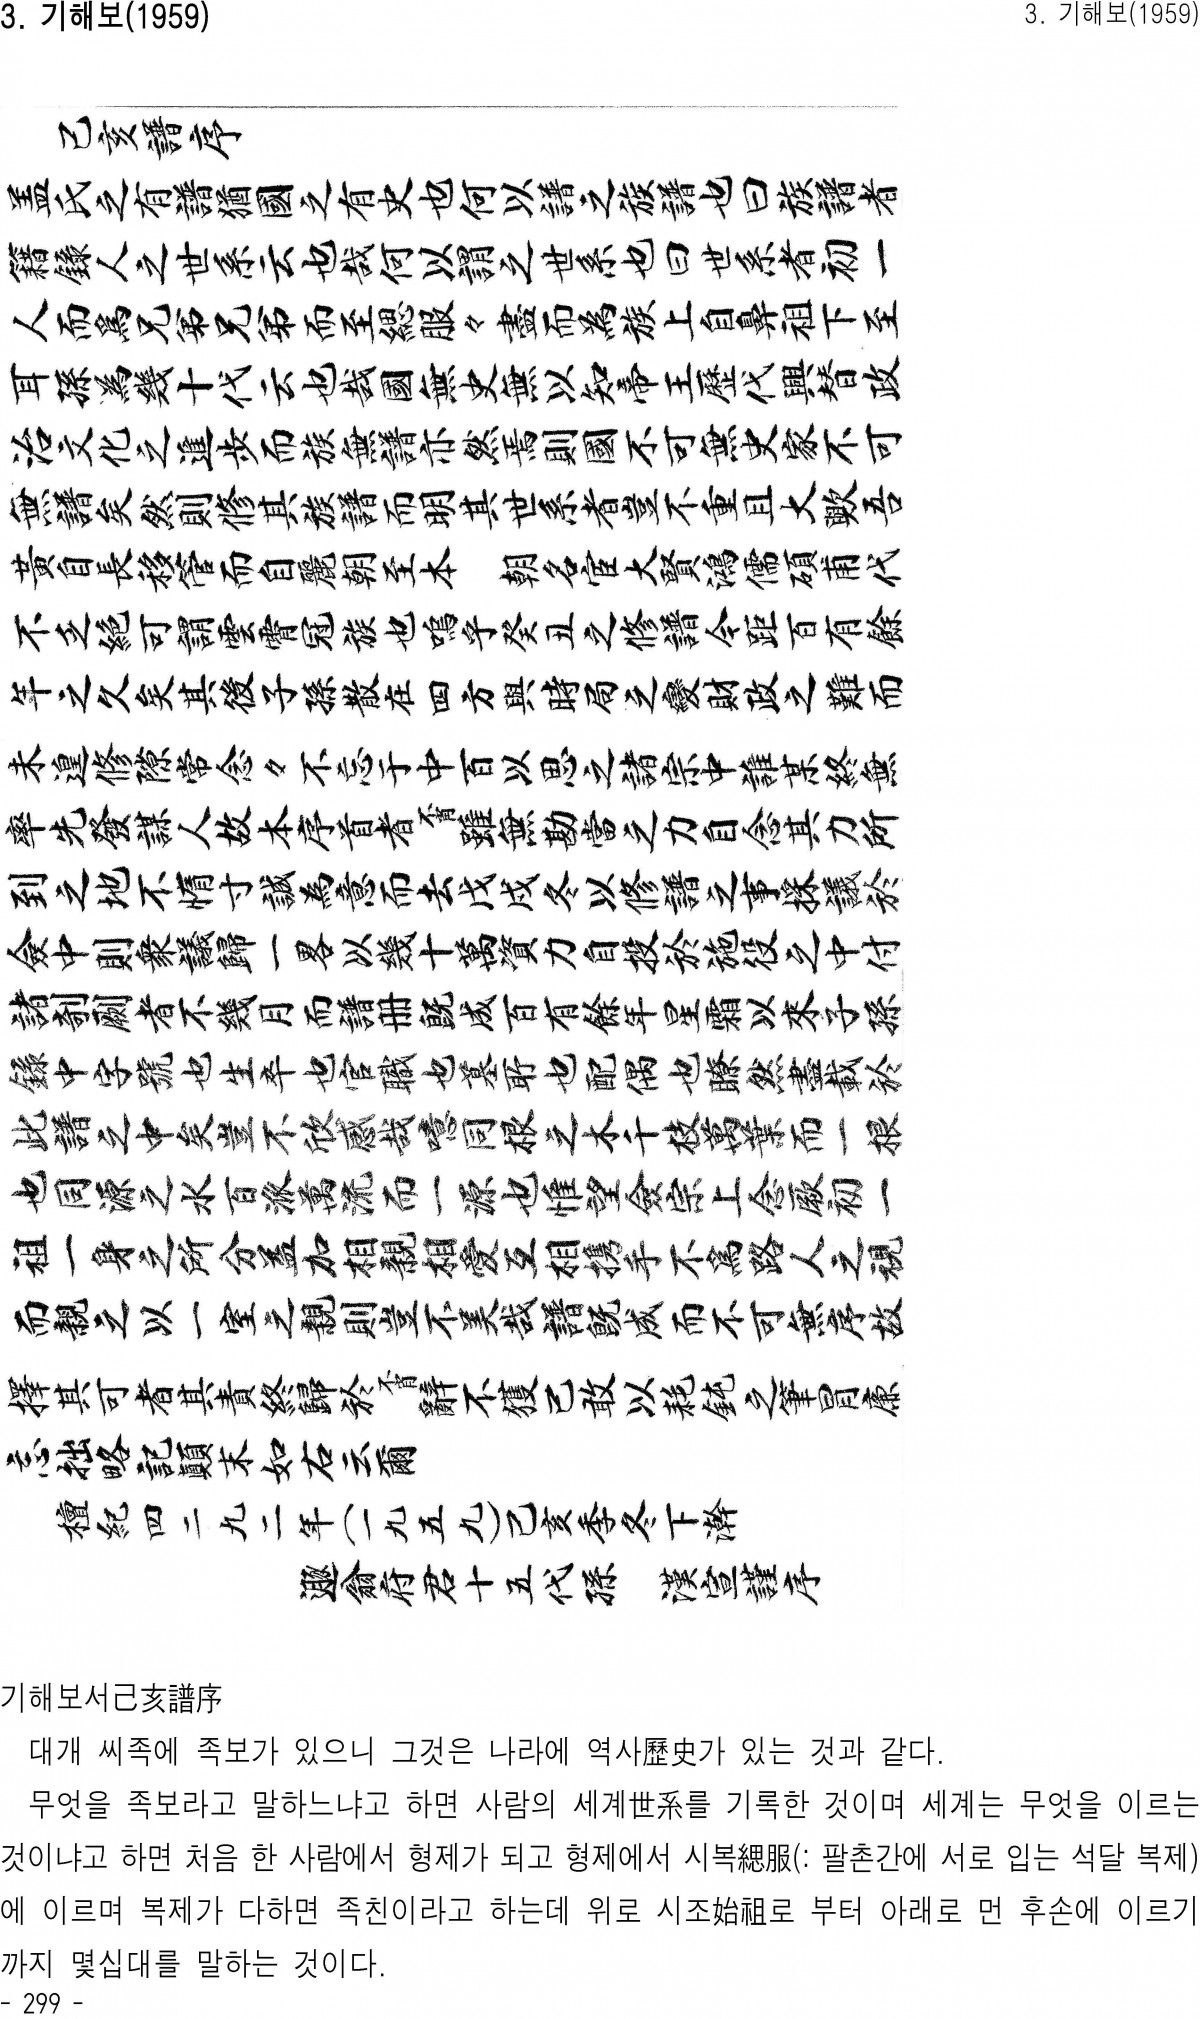 3. 기해보(1959)
3. 기해보(1959)
己亥譜序
盖氏之有譜猶國之有史也何以譜之族譜也曰族譜者
籍錄人之世系云也哉何以謂之世系也曰世系者初一
人而爲兄弟兄弟而至緦服々盡而爲族上自鼻祖下至
耳孫爲幾十代云也哉國無史無以知帝王歷代興替政
治文化之進步而族無譜亦然焉則國不可無史家不可
無譜矣然則修其族譜而明其世系者豈不重且大歟吾
黃自長移管而自麗朝至本 朝名宦大賢鴻儒碩甫代
不乏絶可謂雲霄冠族也嗚乎癸丑之修譜今距百有餘
年之久矣其後子孫散在四方與時局之變財政之難而
未遑修隙常念々不忘于中百以思之諸宗中誰某終無
率先發謀人故本序首者不肖雖無勘當之力自念其力所
到之地不惰寸誠爲意而去戊戌冬以修譜之事採議於
僉中則衆議歸一畧以幾十萬資力自投於施役之中付
諸剞劂者不幾月而譜冊旣成百有餘年星霜以來子孫
錄中字號也生卒也官職也墓所也配偶也瞭然盡載於
此譜之中矣豈不欣感哉噫同根之木千枝萬葉而一根
也同源之水百派萬流而一源也惟望僉宗上念厥初一
祖一身之所分益加相親相愛互相携手不爲路人之視
而親之以一室之親則豈不美哉譜旣成而不可無序故
擇其可者其責終歸於不肖辭不獲已敢以耗鈍之筆冒廉
忘拙略記顚末如右云爾
檀紀四二九二年(一九五九)己亥季冬下澣
遯翁府君十五代孫 漢宣謹序
기해보서己亥譜序
대개 씨족에 족보가 있으니 그것은 나라에 역사歷史가 있는 것과 같다.
무엇을 족보라고 말하느냐고 하면 사람의 세계世系를 기록한 것이며 세계는 무엇을 이르는
것이냐고 하면 처음 한 사람에서 형제가 되고 형제에서 시복緦服(: 팔촌간에 서로 입는 석달 복제)
에 이르며 복제가 다하면 족친이라고 하는데 위로 시조始祖로 부터 아래로 먼 후손에 이르기
까지 몇십대를 말하는 것이다.
- 299 -